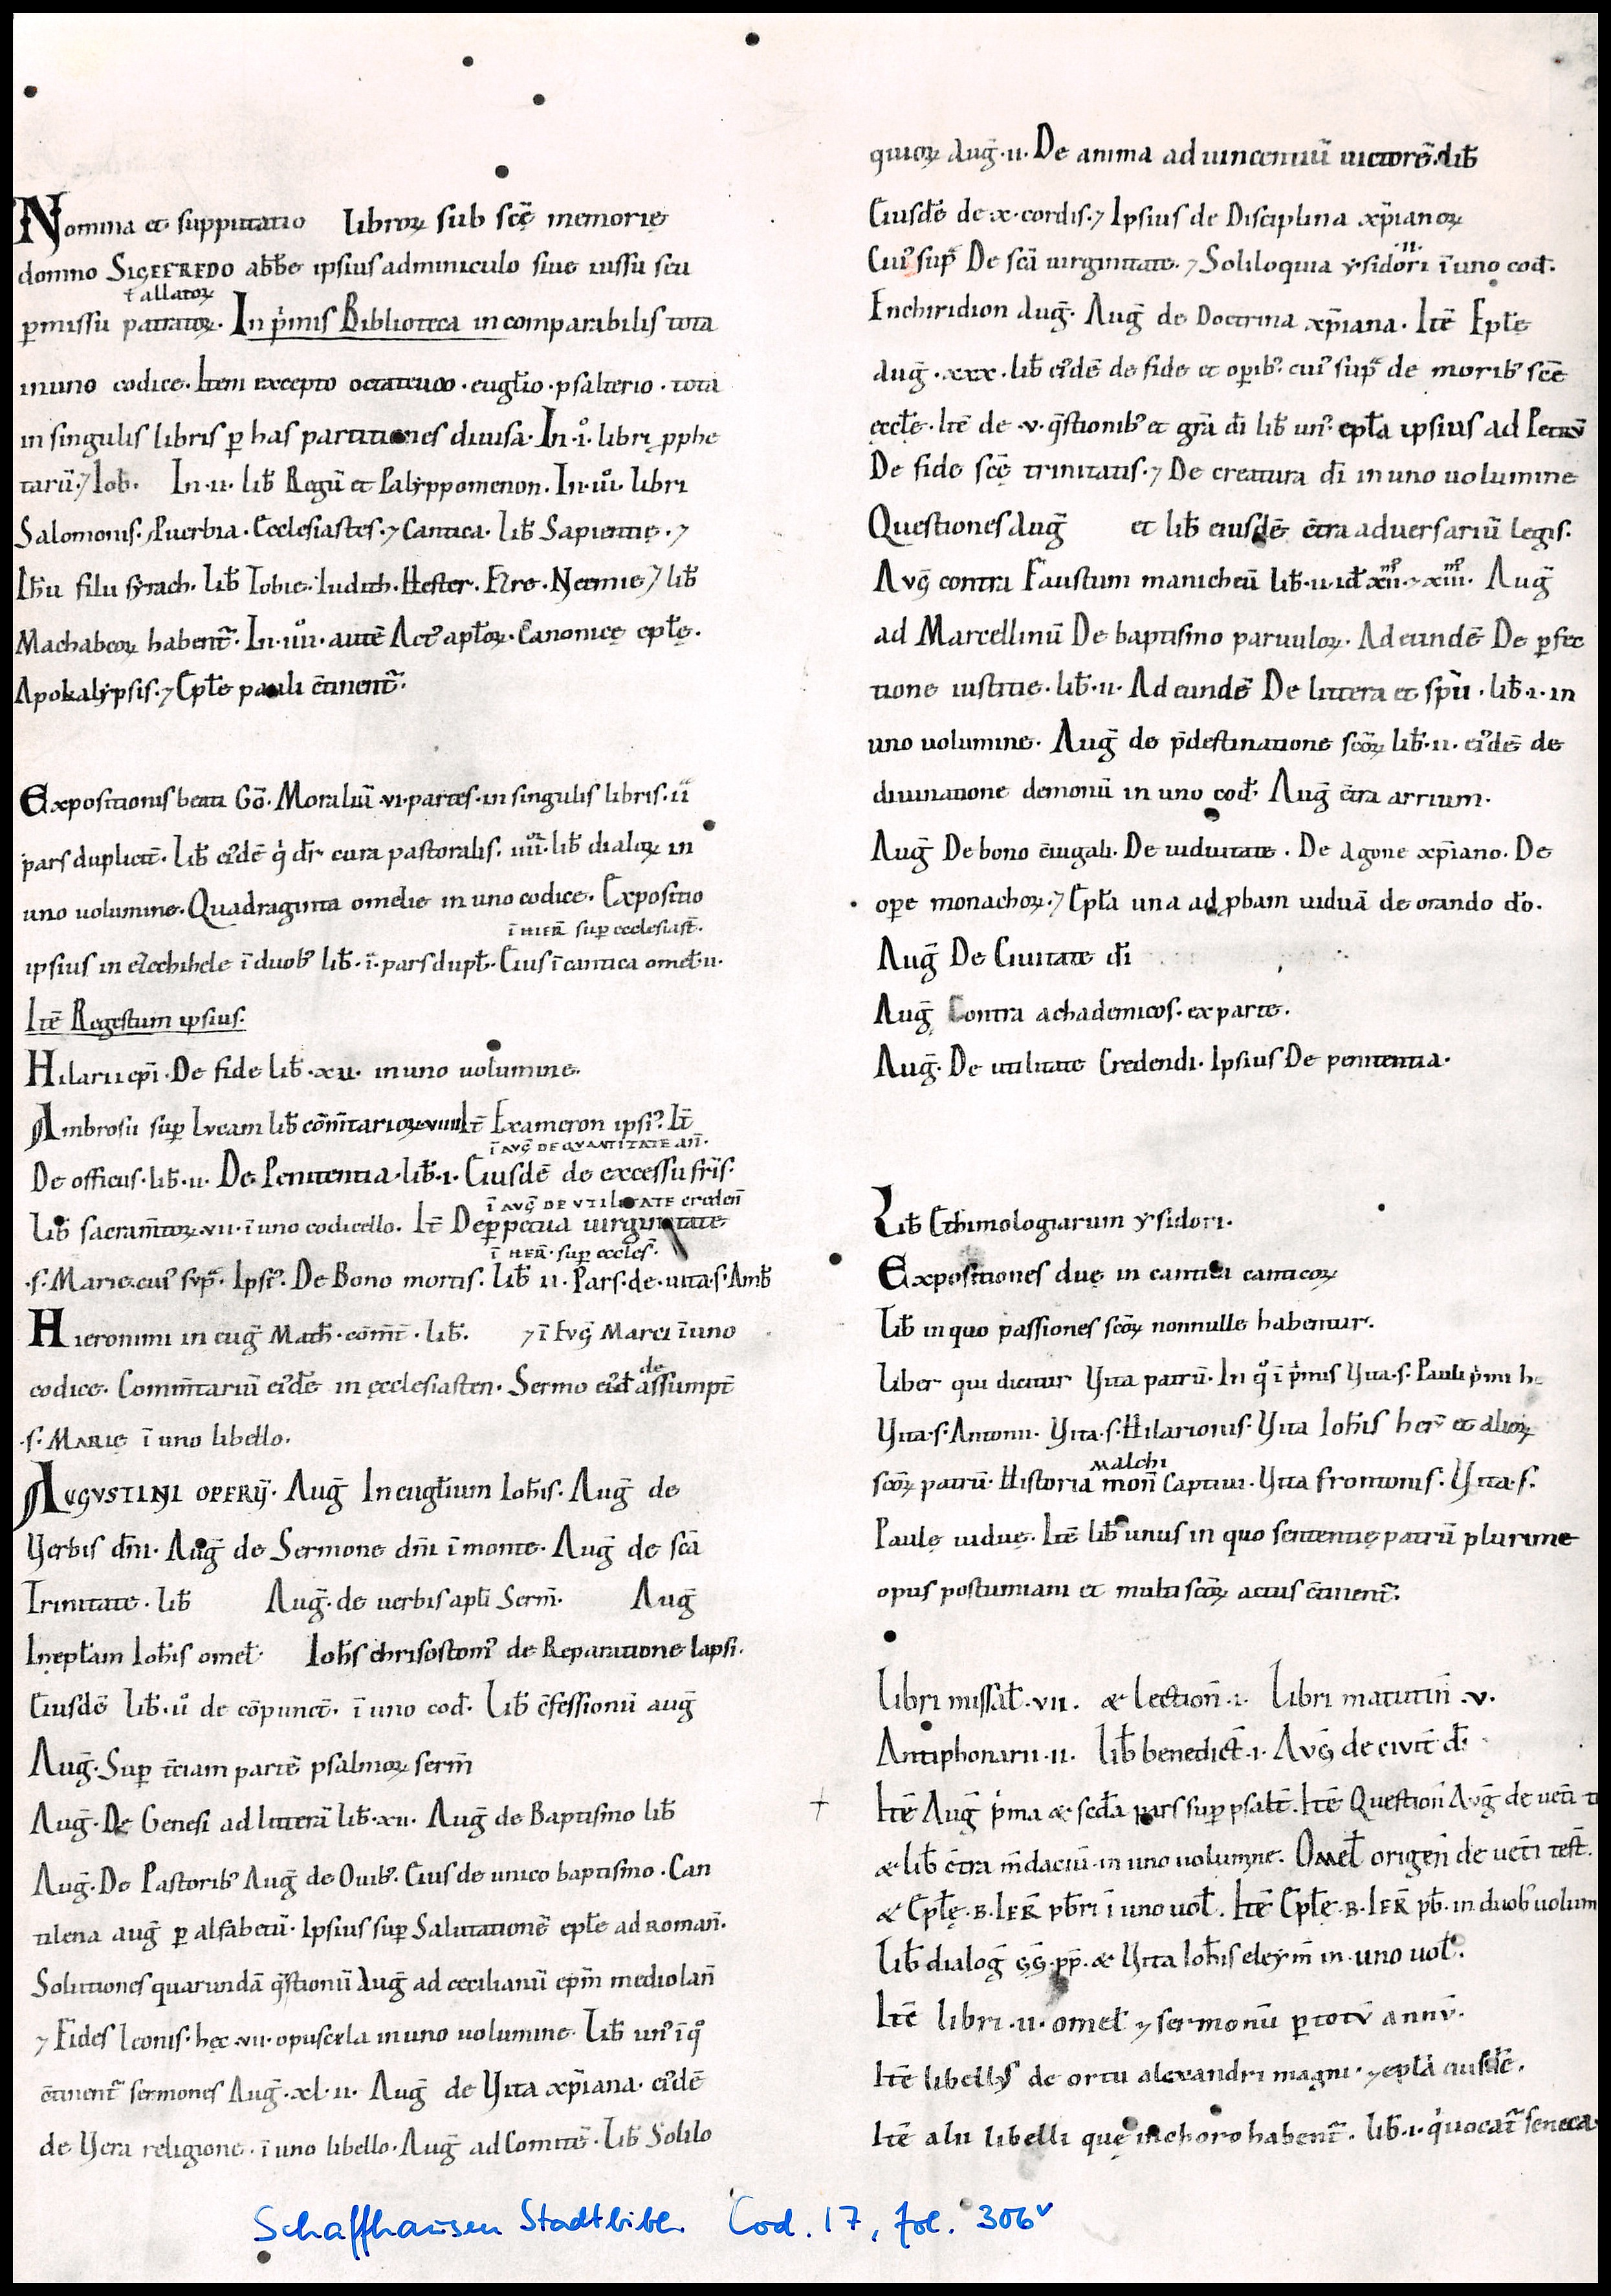 Nomina et supputatio libroꝝ sub scę̄ memorię
domno SIGEFREDO abb̄e ipsius adminiculo siue iussu seu
ł allatoꝝ
ꝑmissu patratoꝝ. In p̍mis Biblioteca incomparabilis tota
in uno codice. Item excepto octateuco. euglio. psalterio. tota
in singulis libris ꝑ has partitiones diuisa. In .i̊. libri ꝓphe
tarū. ⁊ Iob. In .ii. lib̄ Regū et Palyppomenon. In .iii̊. libri
Salomonis. Puerbia. Ecclesiastes. ⁊ Cantica. lib̄ Sapientię. ⁊
Ih̄u filii syrach. lib̄ Tobie. Iudith. Hester. Ezre. Neemie ⁊ lib̄
Machabeoꝝ habent᷑. In .iiii̊. autē Act᾽ apl̄oꝝ. Canonicę epl̄ę.
Apokalypsis. ⁊ Epl̄e pauli ētinent᷑.
Expositionis beati Gō. Moraliū .vi. partes. in singulis libris. ii
pars duplicit̄. lib̄ ei᾽dē q̍ dr̄ cura pastoralis. iiii. lib̄ dialoꝝ in
uno uolumine. Quadraginta omelie in uno codice. Expositio
ī HIER̄ suꝑ ecclesiast̄.
ipsius in ezechihele ī duob᾽ lib̄. ī. pars dupl̄. Eius ī cantica omel̄ .ii.
Itē Regestum ipsius.
Hilarii ep̄i. De fide lib̄ .xii. in uno uolumine.
Ambrosii suꝑ Lucam lib̄ cōm̄tarioꝝ .viiii. It̄ Exameron ipsi᾽. It̄
ī AVḠ DE QVANTITATE an̄.
De officiis. lib̄ .ii. De Penitentia. lib̄ .i. Eiusdē de excessu fr̄is.
ī AVḠ DE VTILITATE creden̄
lib̄ sacram̄toꝝ .vii. ī uno codicello. It̄ De ꝑpetua uirginitate
ī HIER̄. suꝑ eccles̄.
.s. Marie. cui᾽ supᵃ. Ipsi᾽. De Bono mortis. lib̄ ii. Pars. de. uita .s. Amb̄
Hieronimi in euḡ Math̄. cōm̄t. lib̄. ⁊ ī Evḡ Marci ī uno
codice. Comm̄tariū ei᾽dē in ęcclesiasten. Sermo ei᾽d de assumpt̄
.s. MARIĘ ī uno libello.
AVGVSTINI OPERV̄. Auḡ In eugl̄ium Ioh̄is. Auḡ de
Verbis dn̄i. Auḡ de Sermone dn̄i ī monte. Auḡ de sc̄a
Trinitate. lib̄ Auḡ. de uerbis apl̄i Serm̄. Auḡ
In epl̄am Ioh̄is omel̄. Ioh̄s chrisostom᾽ de Reparatione lapsi.
Eiusdē lib̄ .ii̊ de cōpunct̄. ī uno cod̄. lib̄ c̄fessionū auḡ
Auḡ. Suꝑ t̄ciam partē psalmoꝝ serm̄
Auḡ. De Genesi ad litterā lib̄ .xii. Auḡ de Baptismo lib̄
Auḡ. De Pastorib᾽ Auḡ de Ouib᾽. Eius de unico baptismo. Can
tilena auḡ ꝑ alfabetū. Ipsius suꝑ Salutationē epl̄e ad roman̄.
Solutiones quarundā q̄stionū Auḡ ad cecilianū ep̄m mediolan̄
⁊ Fides leonis. hęc .vii. opuscula in uno uolumine. Lib̄ un᾽ ī q°
c̄tinent᷑ sermones Auḡ .xl.ii. Auḡ de Vita xp̄iana. ei᾽dē
de Vera religione. ī uno libello. Auḡ ad Comitē. Lib̄ Solilo
quioꝝ Auḡ .ii. De anima ad uincentiū uictorē. lib̄
Eiusdē de .x. cordis. ⁊ Ipsius de Disciplina xp̄ianoꝝ
.ii.
Cui᾽ supᵃ De sc̄a uirginitate. ⁊ Soliloquia ysidori ī uno cod̄.
Enchiridion Auḡ. Auḡ de Doctrina xp̄iana. Itē Epl̄ę
Auḡ .xxx. lib̄ ei᾽dē de fide et oꝑib᾽. cui᾽ supᵃ de morib᾽ sc̄ę
ęccl̄ę. Itē de .v. q̄stionib᾽ et gr̄a dī lib̄ un᾽. epl̄a ipsius ad Petrū
De fide sc̄ę trinitatis. ⁊ De creatura dī in uno uolumine
Questiones Auḡ et lib̄ eiusdē c̄tra aduersariū legis.
Avḡ contra Faustum manicheū lib̄ .ii. id̄ xii. ⁊ xiii. Auḡ
ad Marcellinū De baptismo paruuloꝝ. Ad eundē De ꝑfec
tione iustitie. lib̄ .ii. Ad eundē De littera et sp̄u. lib̄ .i. in
uno uolumine. Auḡ de p̄destinatione sc̄oꝝ lib̄ .ii. ei᾽dē de
diuinatione demonū in uno cod̄. Auḡ c̄tra arrium.
Auḡ De bono c̄iugali. De uiduitate. De Agone xp̄iano. De
oꝑe monachoꝝ. ⁊ Epl̄a una ad ꝓbam uiduā de orando dō.
Auḡ De Ciuitate dī
Auḡ Contra achademicos. ex parte.
Auḡ. De utilitate Credendi. Ipsius De penitentia.
Lib̄ Ethimologiarum ysidori.
Expositiones duę in cantica canticoꝝ
Lib̄ in quo passiones sc̄oꝝ nonnulle habentur.
Liber qui dicitur Vita patrū. In q° ī p̍mis Vita .s. Pauli p̍mi he
Vita .s. Antonii. Vita .s. Hilarionis. Vita Ioh̄is her̄ et alioꝝ
Malchi
sc̄oꝝ patrū. Historia mon̄ Captiui. Vita frontonis. Vita .s.
Paulę uiduę. Itē lib̄ unus in quo sententię patrū plurime
opus postumiani et multi sc̄oꝝ actus c̄tinent᷑.
Libri missal̄ .vii. & lection̄ .i. Libri matutin̄ .v.
Antiphonarii .ii. lib̄ benedict̄ .i. Avḡ de civit̄ d̄i
Itē Auḡ p̍ma & sc̄da pars suꝑ psalt̄. Itē Question̄ Avḡ de uet̄i t
& lib̄ c̄tra m̄daciū in uno uolumine. Omel̄ origen̄ de uet̄i test̄.
& Epl̄ę .B. IER̄ pb̄ri ī uno uol̄. Itē Epl̄ę .B. IER̄ pb̄. in duob᾽ uolum
Lib̄ dialoḡ GḠ. pp̄. & Vita Ioh̄is eleym̄ in uno uol̄.
Itē libri .ii. omel̄ ⁊ sermonū ꝑ totv̄ annv̄.
Itē libellꝰ de ortu alexandri magni. ⁊ epl̄a eiusdē.
Itē alii libelli quę in choro habent᷑. lib̄ .i. q̍ uocat᷑ seneca
Schaffhausen Stadtbibl. Cod. 17, fol. 306ᵛ